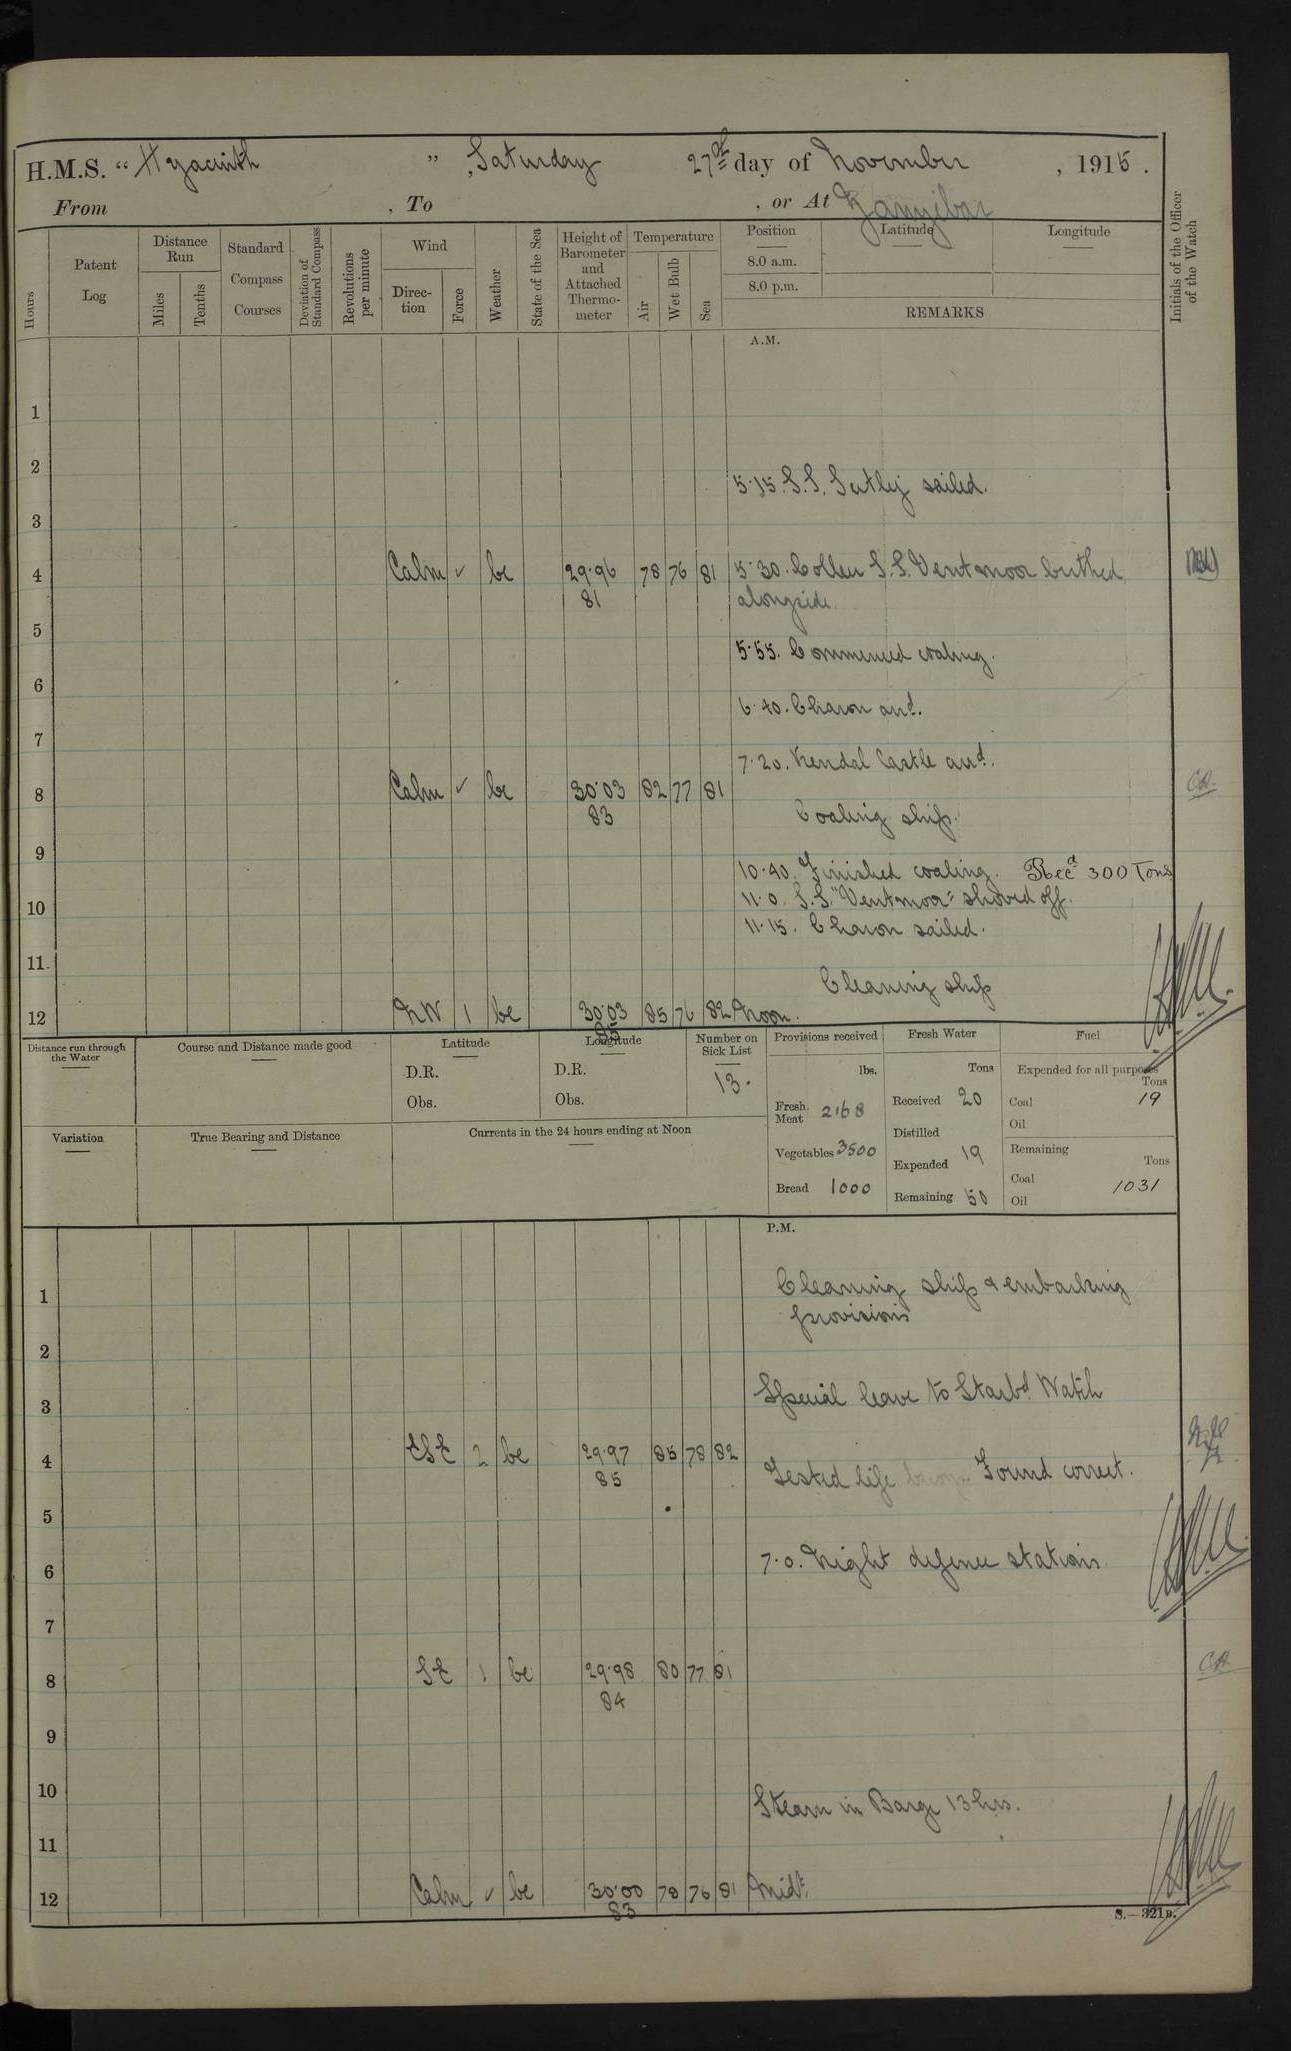 H.M.S. “ Hyacinth ” , Saturday 27th day of November , 1915 .
From , To , or At Zanzibar
Hours
Patent Log
Distance Run
Miles
Tenths
Standard Compass Courses
Deviation of Standard Compass
Revolutions per minute
Wind
Direction
Force
Weather
State of the Sea
Height of Barometer and Attached Thermometer
Temperature
Air
Wet Bulb
Sea
Position Latitude Longitude
8.0 a.m.
8.0 p.m.
REMARKS
Initials of the Officer of the Watch
A.M.
1
2
5.15. S.S. Sutlej sailed.
3
4 Calm ✓ bc 29.96 78 76 81 5.30. Collier S.S. Ventmoor berthed
81 alongside.
5
5.55. Commenced coaling.
6
6.40. Charon arrd.
7
7.20. Kendal Castle arrd.
8 Calm ✓ bc 30.03 82 77 81
83 Coaling ship.
9
10.40. Finished coaling. Recd 300 Tons
10 11.0. S.S. "Ventmoor" shoved off.
11.15. Charon sailed.
11
Cleaning ship
12 NW 1 bc 30.03 85 76 82 Noon.
85
Distance run through the Water
Course and Distance made good
Latitude
D.R.
Obs.
Longitude
D.R.
Obs.
Number on Sick List
13.
Provisions received
lbs.
Fresh Meat 2168
Vegetables 3500
Bread 1000
Fresh Water
Tons
Received 20
Distilled
Expended 19
Remaining 50
Fuel
Expended for all purposes
Tons
Coal 19
Oil
Remaining
Tons
Coal 1031
Oil
Variation
True Bearing and Distance
Currents in the 24 hours ending at Noon
P.M.
1 Cleaning ship & embarking
provisions
2
3 Special leave to Starbd Watch
4 ESE 2 bc 29.97 85 78 82
85 Tested life buoys. Found correct.
5
6 7.0. Night defence stations.
7
8 SE 1 bc 29.98 80 77 81
84
9
10 Steam in Barge 13 hrs.
11
12 Calm ✓ bc 30.00 78 76 81 Midt.
83
S.—321B.